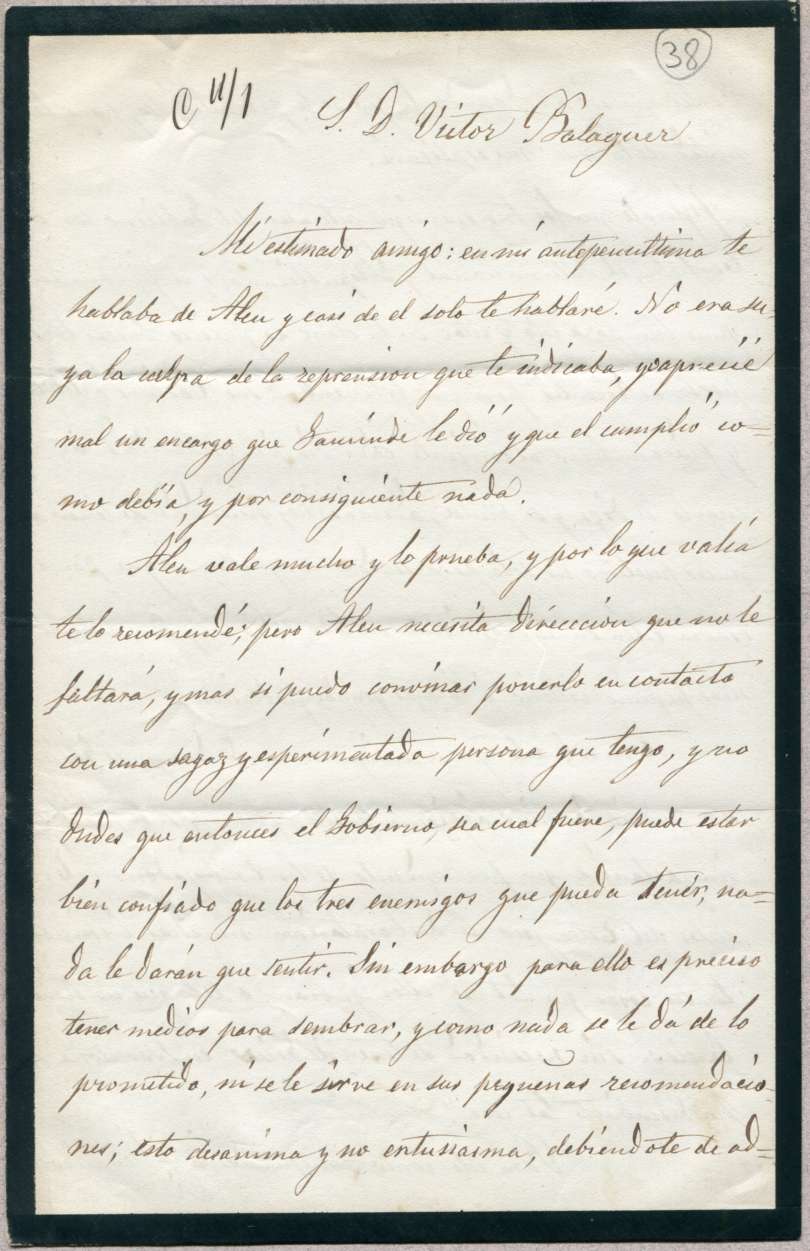 38
C 11/1
S. D. Victor Balaguer
Mi estimado amigo: en mi antepenultima te
hablaba de Aleu y casi de el solo te hablaré. No era su-
ya la culpa de la reprension que te indicaba, yo aprecié
mal un encargo que Gaminde le dió y que el cumplió co=
mo debía, y por consiguiente nada.
Aleu vale mucho y lo prueba, y por lo que valía
te lo recomendé; pero Aleu necesita direccion que no le
faltará, y mas si puedo convinar ponerlo en contacto
con una sagaz y esperimentada persona que tengo, y no
dudes que entonces el Gobierno, sea cual fuere, puede estar
bien confiado que los tres enemigos que pueda tener, na=
da le darán que sentir. Sin embargo para ello es preciso
tener medios para sembrar, y como nada se le dá de lo
prometido, ni se le sirve en sus pequeñas recomendacio-
nes; esto desanima y no entusiasma, debiéndote de ad=